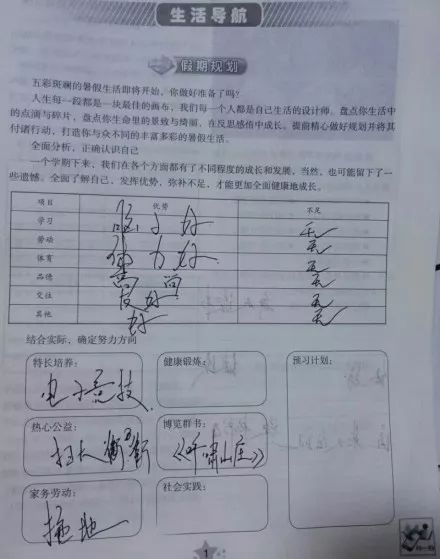 生活导航
假期规划
五彩斑斓的暑假生活即将开始，你做好准备了吗?
人生每一段都是一块最佳的画布，我们每一个人都是自己生活的设计师。盘点你生活中
的点滴与碎片，盘点你生命里的景致与绮丽，在反思感悟中成长。提前精心做好规划并将其
付诸行动，打造你与众不同的丰富多彩的暑假生活。
全面分析，正确认识自己
一个学期下来，我们在各个方面都有了不同程度的成长和发展，当然，也可能留下了一
些遗憾。全面了解自己，发挥优势，弥补不足，才能更加全面健康地成长。
项目 优势 不足
学习 无
劳动 力好 无
体育 无
品德 高尚 无
交往 友好 无
其他 好 无
结合实际、确定努力方向
特长培养： 健康锻炼： 预习计划：
电子竞技
热心公益： 博览群书：
扫大街 《呼啸山庄》
家务劳动： 社会实践：
拖地
1